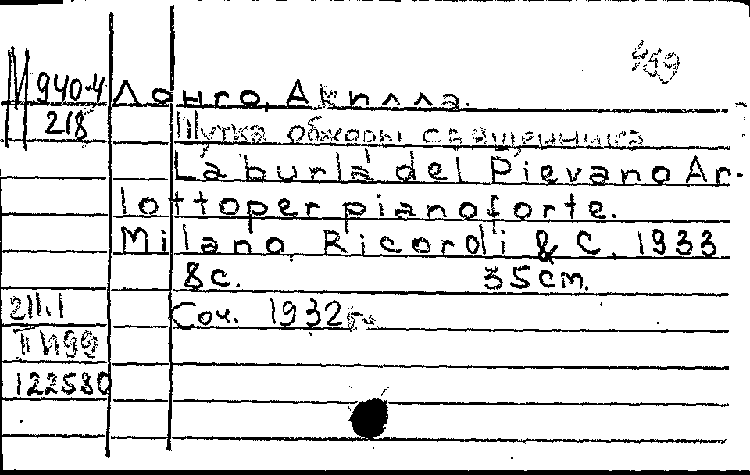 459
М 940-4 Лонго, Акилла.
218 Шутка обжоры священника
La burla del Pievano Ar-
lotto per pianoforte.
Milano Ricordi & C. 1933
8 с. 35 cm.
211.1 Соч. 1932 г.
122580